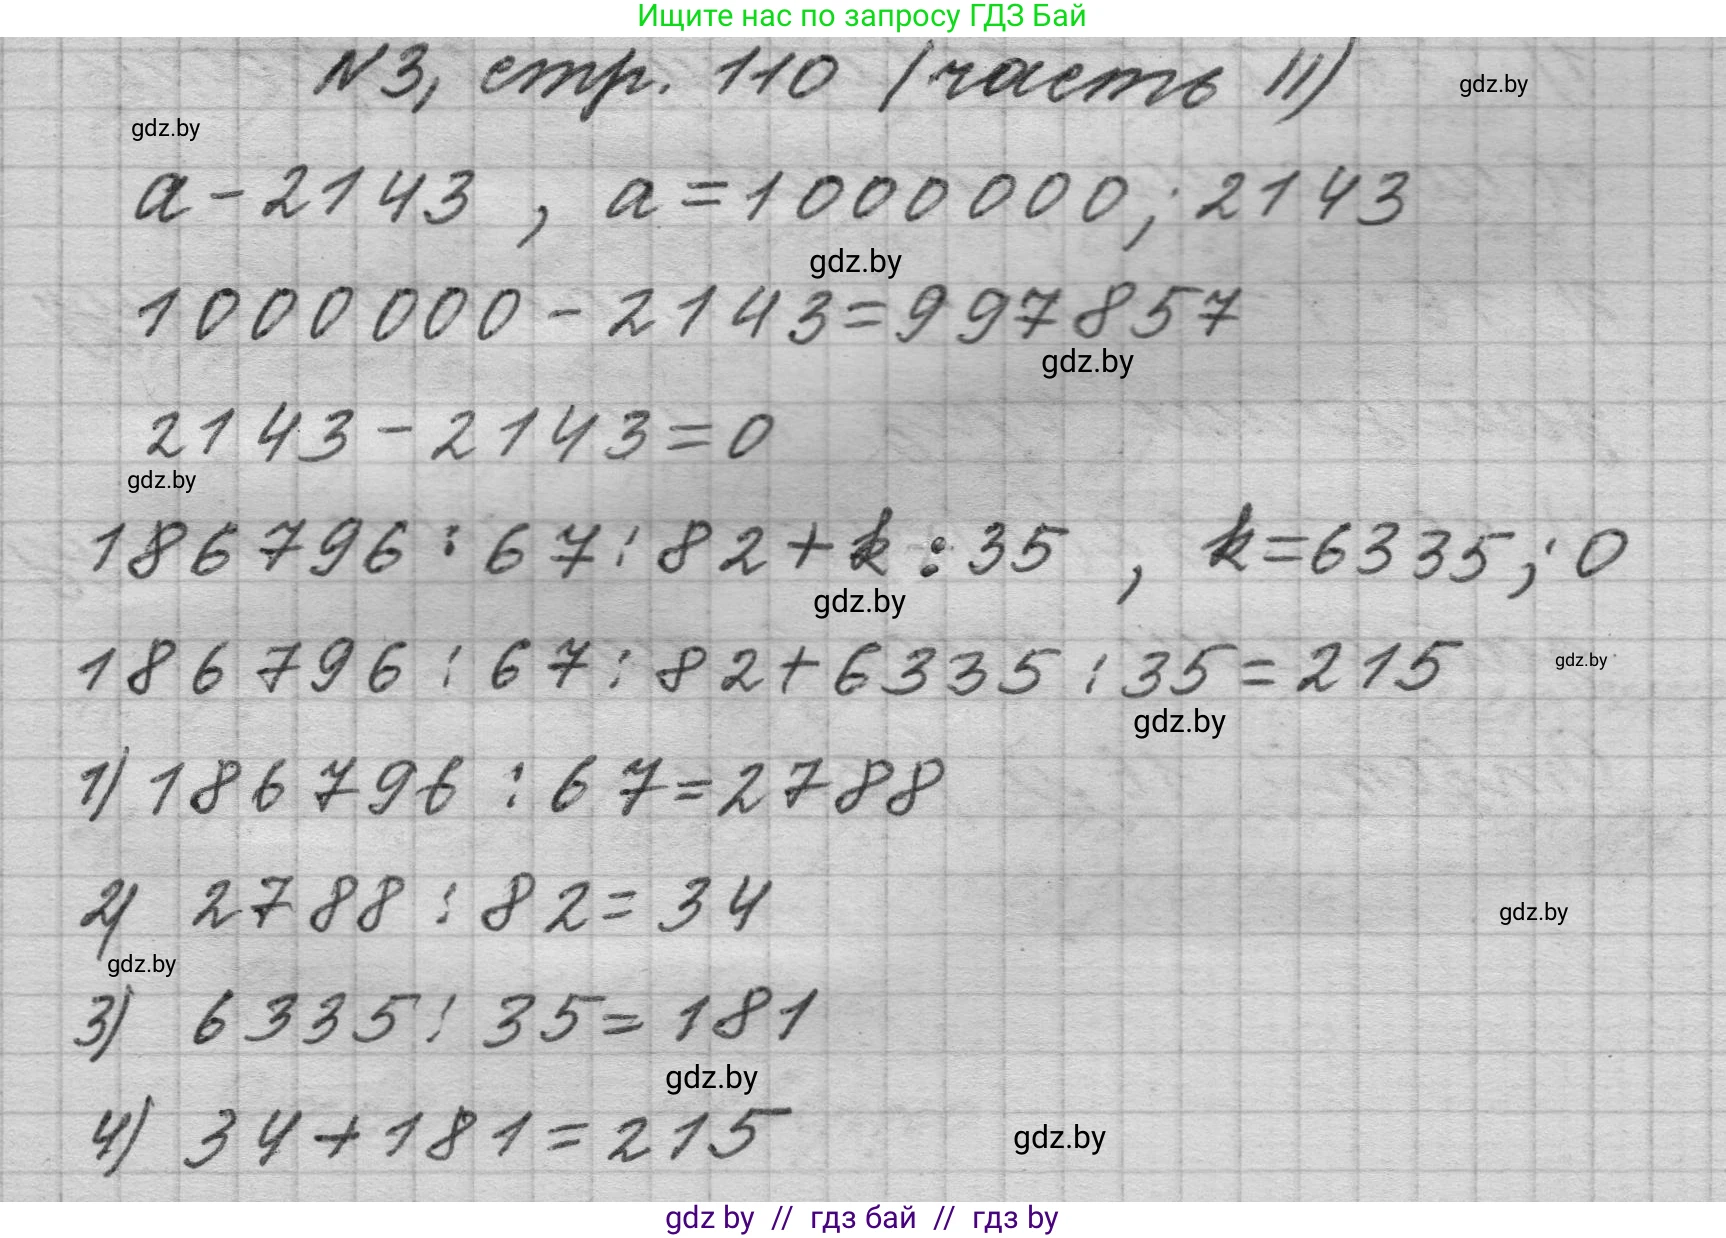 Ищите нас по запросу ГДЗ Бай
N3, стр. 110 (часть II)
gdz.by
gdz.by
a - 2143 , a = 1000000; 2143
gdz.by
1000000 - 2143 = 997857
gdz.by
2143 - 2143 = 0
gdz.by
186796 : 67 : 82 + k : 35 , k = 6335; 0
gdz.by
186796 : 67 : 82 + 6335 : 35 = 215
gdz.by
gdz.by
1) 186796 : 67 = 2788
2) 2788 : 82 = 34
gdz.by
gdz.by
3) 6335 : 35 = 181
gdz.by
4) 34 + 181 = 215
gdz.by
gdz by // гдз бай // гдз by